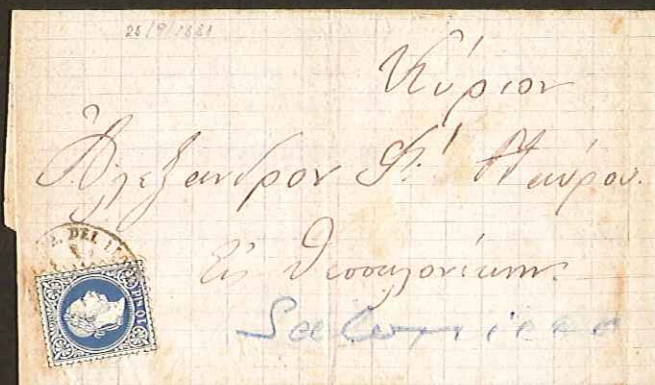 25/9/1881
Κύριον
Ἀλεξανδρον Στ! Μαύρου.
Εις Θεσσαλονίκην
Salonicco
DEL
SLD 10